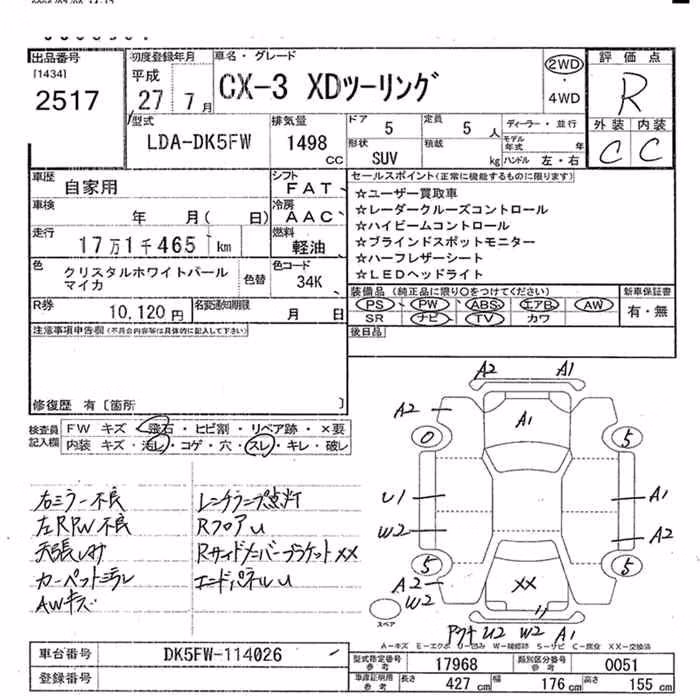 出品番号
[1434]
2517
初度登録年月
平成
27年 7月
車名・グレード
CX-3 XDツーリング
2WD
・
4WD
評価点
R
外装 内装
C C
型式
LDA-DK5FW
排気量
1498
CC
ドア 5
定員 5 人
ディーラー・並行
形状
SUV
積載 kg
モデル年式 年
ハンドル 左・右
車歴
自家用
シフト
FAT
車検
年 月( 日)
冷房
AAC
走行
17万1千465 km
燃料
軽油
色
クリスタルホワイトパール
マイカ
色替
色コード
34K
R券
10,120円
名変通知期限
月 日
セールスポイント(正常に機能するものに限ります)
☆ユーザー買取車
☆レーダークルーズコントロール
☆ハイビームコントロール
☆ブラインドスポットモニター
☆ハーフレザーシート
☆LEDヘッドライト
装備品(純正品に限り○をつけてください)
PS PW ABS エアB AW
SR ナビ TV カワ
新車保証書
有・無
後日品
注意事項申告欄(不具合内容等は具体的に記入して下さい)
修復歴 有〔箇所 〕
検査員記入欄
FW キズ・飛石・ヒビ割・リペア跡・×要
内装 キズ・汚レ・コゲ・穴・スレ・キレ・破レ
右ミラー不良
左RPW不良
天張しみ
カーペットミラレ
AWキズ
レンチランプ点灯
RフロアU
Rサイドメンバーブラケット××
エンドパネルU
A2 A1
A2
A1
0
5
U1
A1
W2
A2
5
5
A2
W2
××
スペア
U2 W2 A1
A-キズ E-エクボ U-凹み W-補修跡 S-サビ C-腐食 XX-交換済
車台番号
DK5FW-114026
登録番号
型式指定番号
参考
17968
類別区分番号
参考
0051
車庫証明用
参考
長さ 427 cm
幅 176 cm
高さ 155 cm